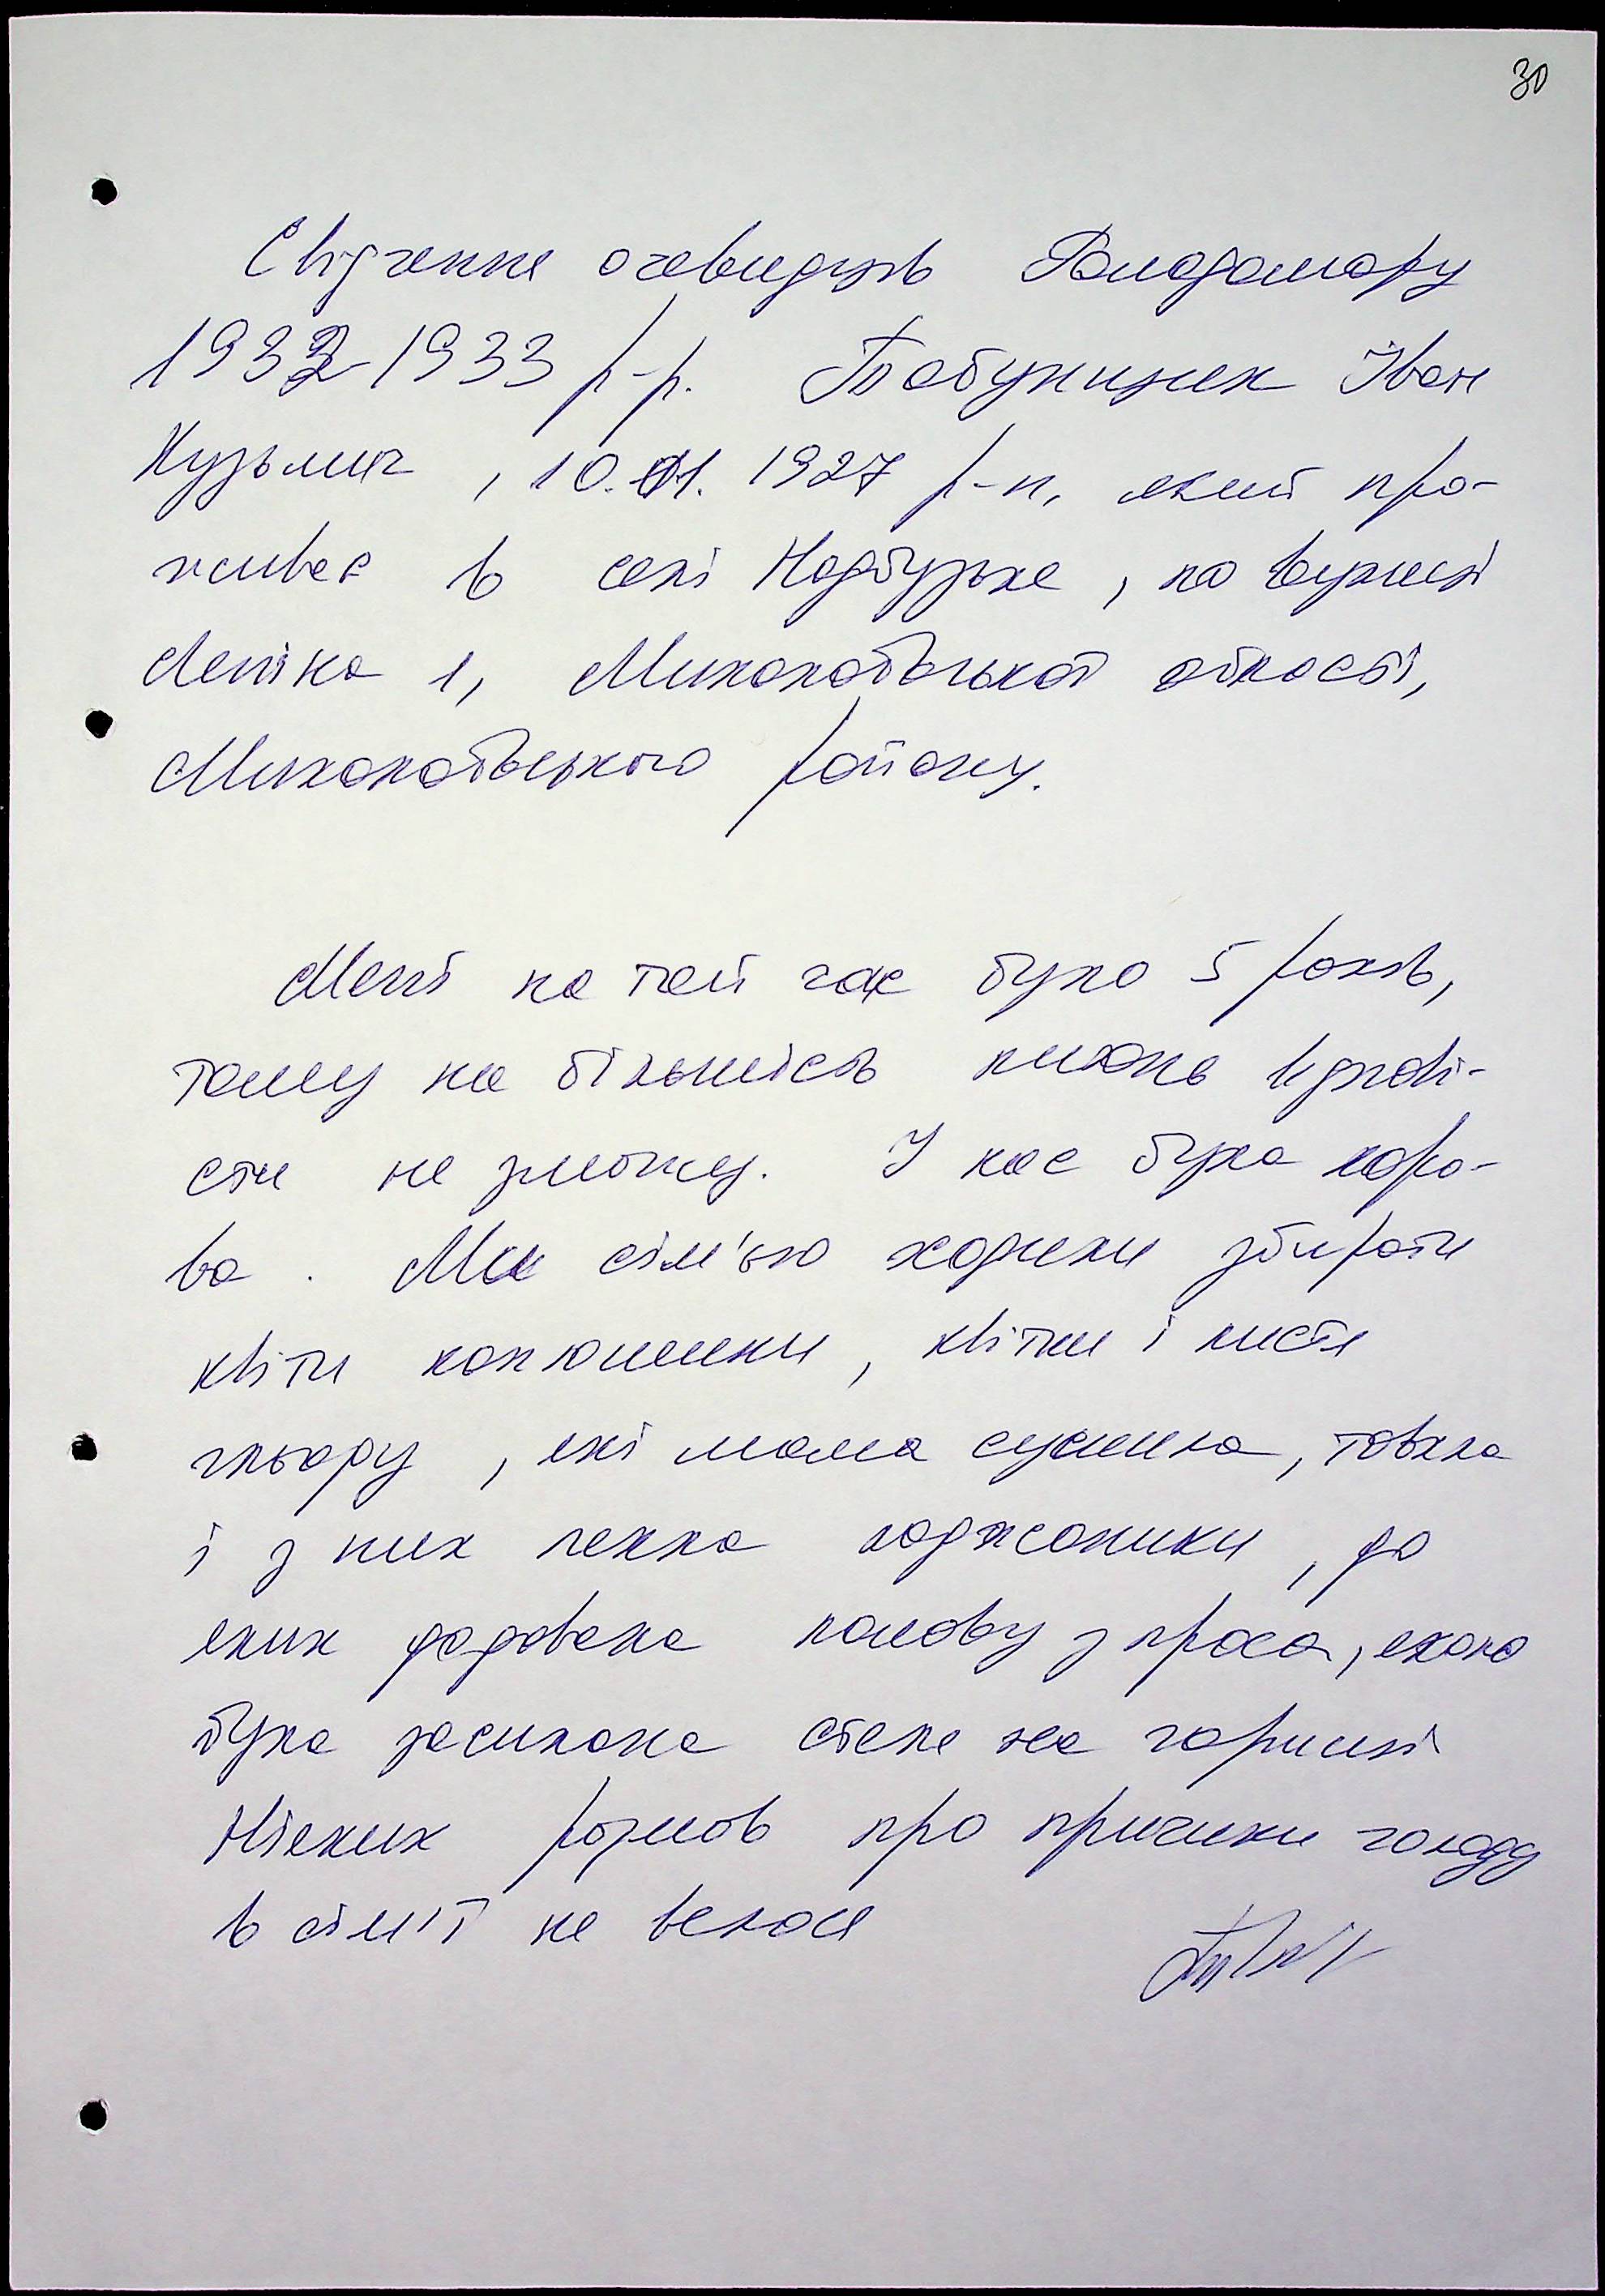 30
Свідчення очевидців Голодомору
1932-1933 р-р. Табунщик Іван
Кузьмич, 10.01.1927 р-н, який про-
живає в селі Надбузьке, по вулиці
Леніна 1, Миколаївської області,
Миколаївського району.
Мені на той час було 5 років,
тому на більшість питань відпові-
сти не зможу. У нас була коро-
ва. Ми сім'єю ходили збирати
квіти конюшини, квітки і листя
гльоду, які мама сушила, товкла
і з них пекла коржоники, до
яких додавала полову з проса, якою
була засипана стеля на горищі
Ніяких розмов про причини голоду
в сім'ї не велося